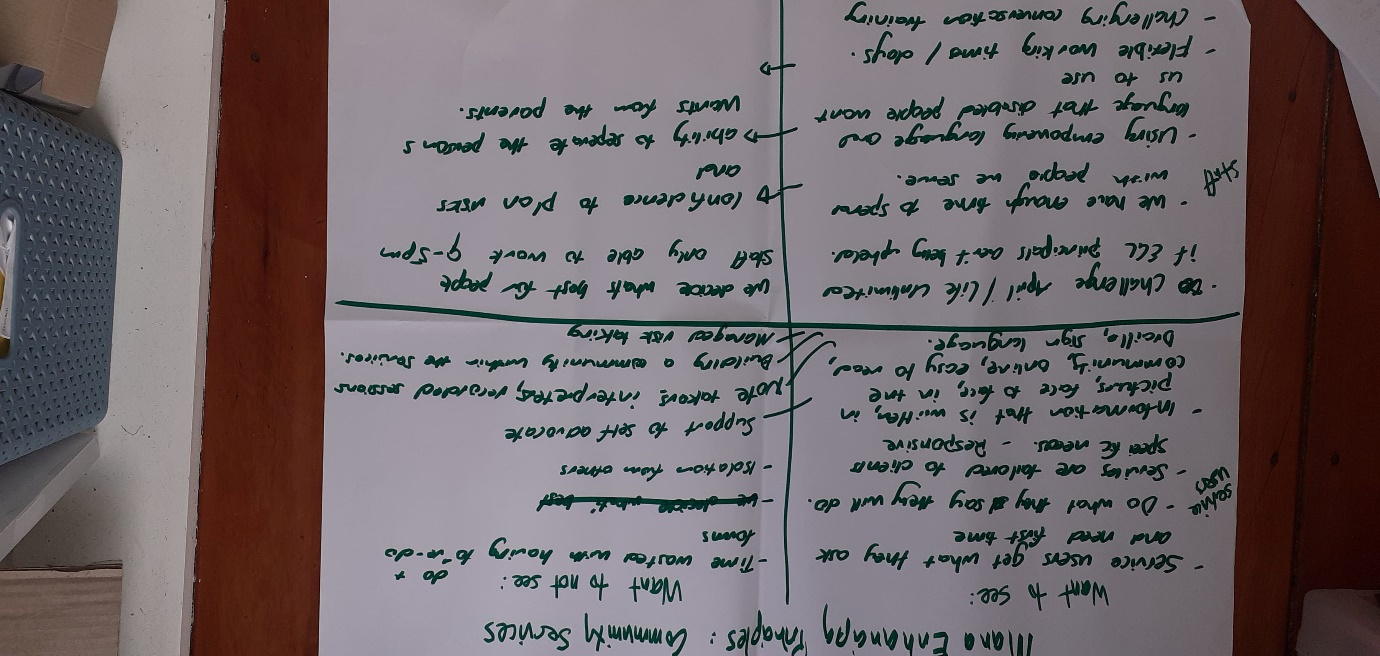 Mana Enhancing Principles : Community Services
Want to see:
- Service users get what they ask
and need first time
service
users
- Do what they say they will do.
- Services are tailored to clients
specific needs. - Responsive
- Information that is written, in
pictures, face to face, in the
community, online, easy to read,
sign language.
Want to not see:
- Time wasted with having to do + re-do
forms
- we decide what's best
- Isolation from others
Support to self advocate
Note takers, interpreters, recorded sessions
Building a community within the services.
Managed risk taking
Staff
- Challenge April / Life Unlimited
if EGL principals aren't being upheld.
- We have enough time to spend
with people we serve.
- Using empowering language and
language that disabled people want
us to use
- Flexible working time / days.
- Challenging conversation training
we decide whats best for people
Staff only able to work 9-5pm
Confidence to plan visits
and
ability to seperate the persons
wants from the parents.